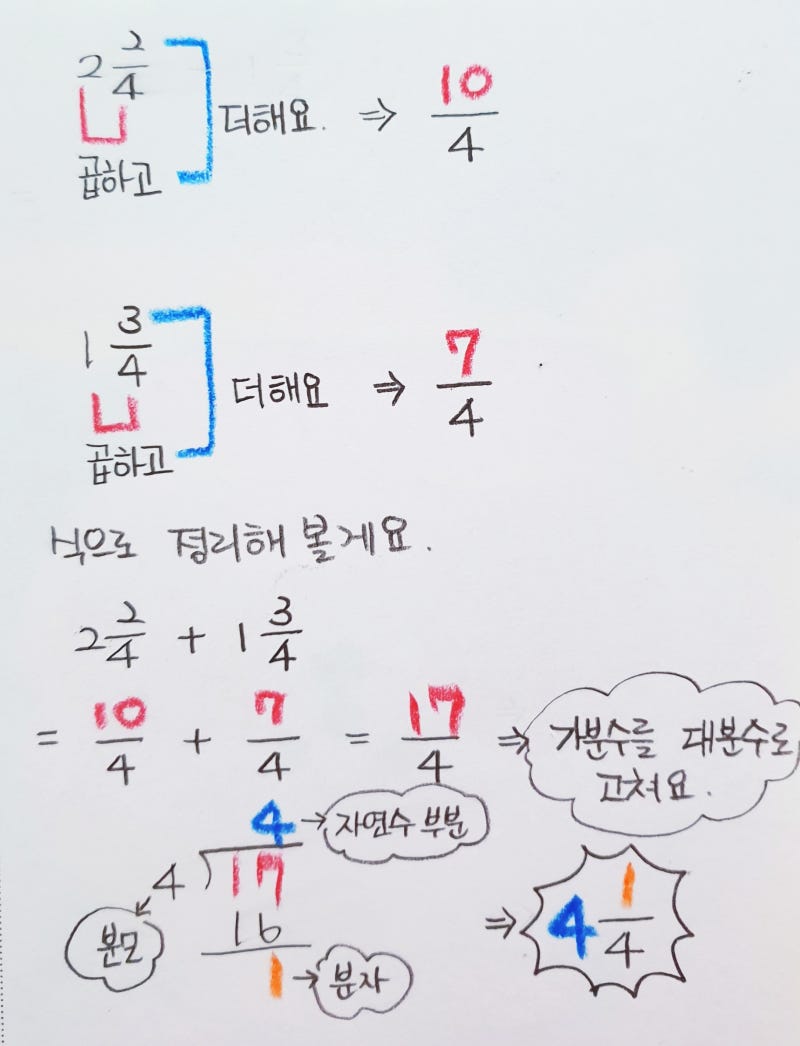 2 2/4 더해요. ⇒ 10/4
곱하고
1 3/4 더해요 ⇒ 7/4
곱하고
식으로 정리해 볼게요.
2 2/4 + 1 3/4
= 10/4 + 7/4 = 17/4 ⇒ 가분수를 대분수로
고쳐요.
4 → 자연수 부분
4 ) 17
분모
16
1 → 분자
⇒ 4 1/4